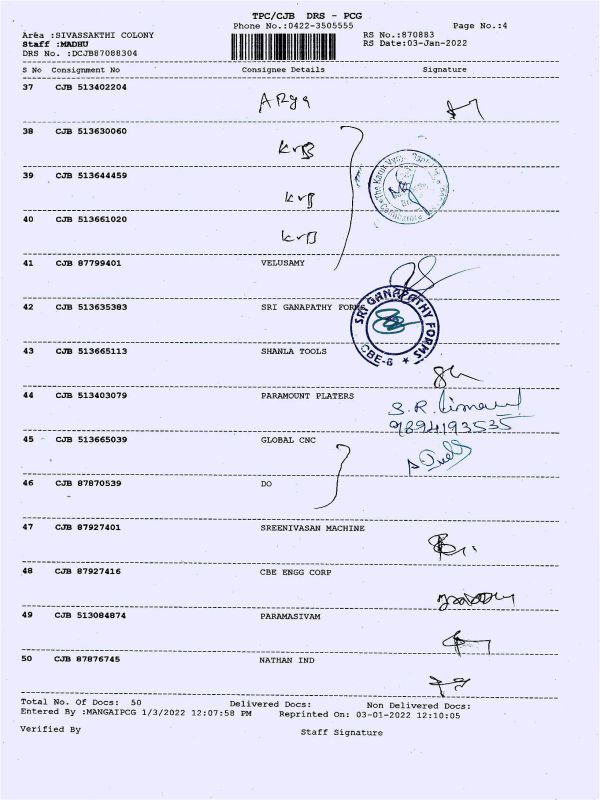 TPC/CJB DRS - PCG
Phone No.:0422-3505555 Page No.:4
Area :SIVASSAKTHI COLONY RS No.:870883
Staff :MADHU RS Date:03-Jan-2022
DRS No. :DCJB87088304
S No Consignment No Consignee Details Signature
37 CJB 513402204 ARya
38 CJB 513630060 KVB
39 CJB 513644459 KVB
40 CJB 513661020 KVB
41 CJB 87799401 VELUSAMY
42 CJB 513635383 SRI GANAPATHY FORMS
SRI GANAPATHY FORMS
CBE-6 ★
43 CJB 513665113 SHANLA TOOLS
44 CJB 513403079 PARAMOUNT PLATERS
S.R.
9894193535
45 CJB 513665039 GLOBAL CNC
46 CJB 87870539 DO
47 CJB 87927401 SREENIVASAN MACHINE
48 CJB 87927416 CBE ENGG CORP
49 CJB 513084874 PARAMASIVAM
50 CJB 87876745 NATHAN IND
Total No. Of Docs: 50 Delivered Docs: Non Delivered Docs:
Entered By :MANGAIPCG 1/3/2022 12:07:58 PM Reprinted On: 03-01-2022 12:10:05
Verified By Staff Signature